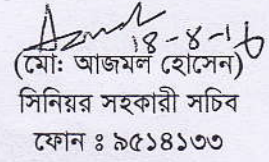 18-8-16
(মোঃ আজমল হোসেন)
সিনিয়র সহকারী সচিব
ফোন ঃ ৯৫১৪১৩৩